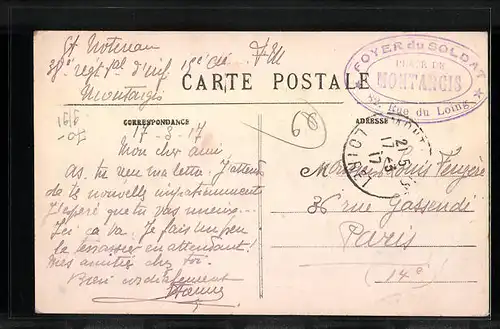 38e regt d'inf 18e Cie F M
Montargis
CARTE POSTALE
FOYER du SOLDAT
PLACE DE
MONTARGIS
82, Rue du Loing
CORRESPONDANCE
ADRESSE
17-3-17
Mon cher ami
As-tu reçu ma lettre. J'attends
de tes nouvelles impatiemment
J'espère que tu vas mieux
Ici ça va. Je fais un peu
le terrassier en attendant!
Mes amitiés chez toi.
Bien cordialement
LOIRET
17-3
17
Monsieur Louis Fougère
36 rue Gassendi
Paris
(14e)